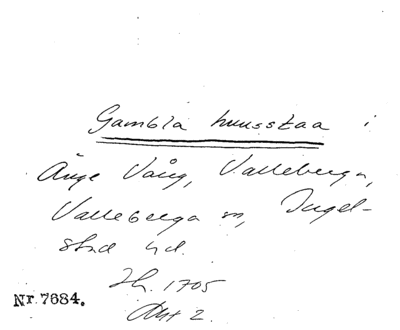 Gambla huusstaa i
Änge Vång, Valleberga,
Valleberga sn, Ingel-
stad hd.
Jb. 1705
Akt 2.
Nr. 7684.